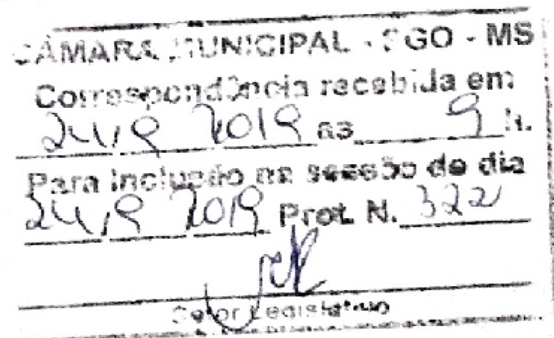 CÂMARA MUNICIPAL - SGO - MS
Correspondência recebida em
24/9 2019 às 9 h.
Para inclusão na sessão do dia
24/9 2019 Prot. N. 322
Setor Legislativo